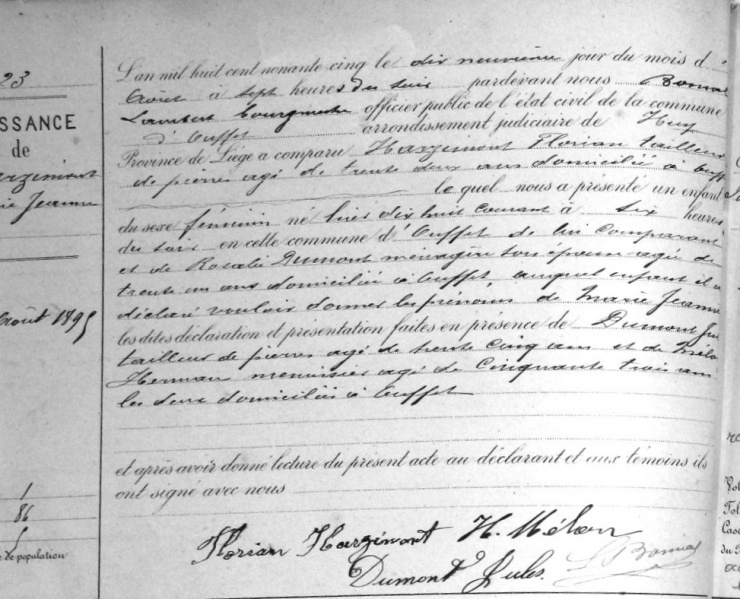 23
ISSANCE
de
Marie Jeanne
Août 1895
L'an mil huit cent nonante cinq le dix neuvième jour du mois d
Août à sept heures du soir pardevant nous
Lambert bourgmestre officier public de l'état civil de la commune
d'Ouffet arrondissement judiciaire de Huy
Province de Liége a comparu Harzimont Florian tailleur
de pierres agé de trente deux ans domicilié à Ouff
le quel nous a présenté un enfant
du sexe féminin né hier dix huit courant à six heures
du soir en cette commune d'Ouffet de lui comparant
et de Rosalie Dumont ménagère son épouse agée de
trente un ans domiciliée à Ouffet, auquel enfant il a
déclaré vouloir donner les prénoms de Marie Jeanne
les dites déclaration et présentation faites en présence de Dumont Ju
tailleur de pierres agé de trente cinq ans et de Mélo
Herman menuisier agé de cinquante trois ans
les deux domiciliés à Ouffet
et après avoir donné lecture du présent acte au déclarant et aux témoins ils
ont signé avec nous
Florian Harzimont H. Mélon
Dumont Jules. L Bonnai
1
86
e de population